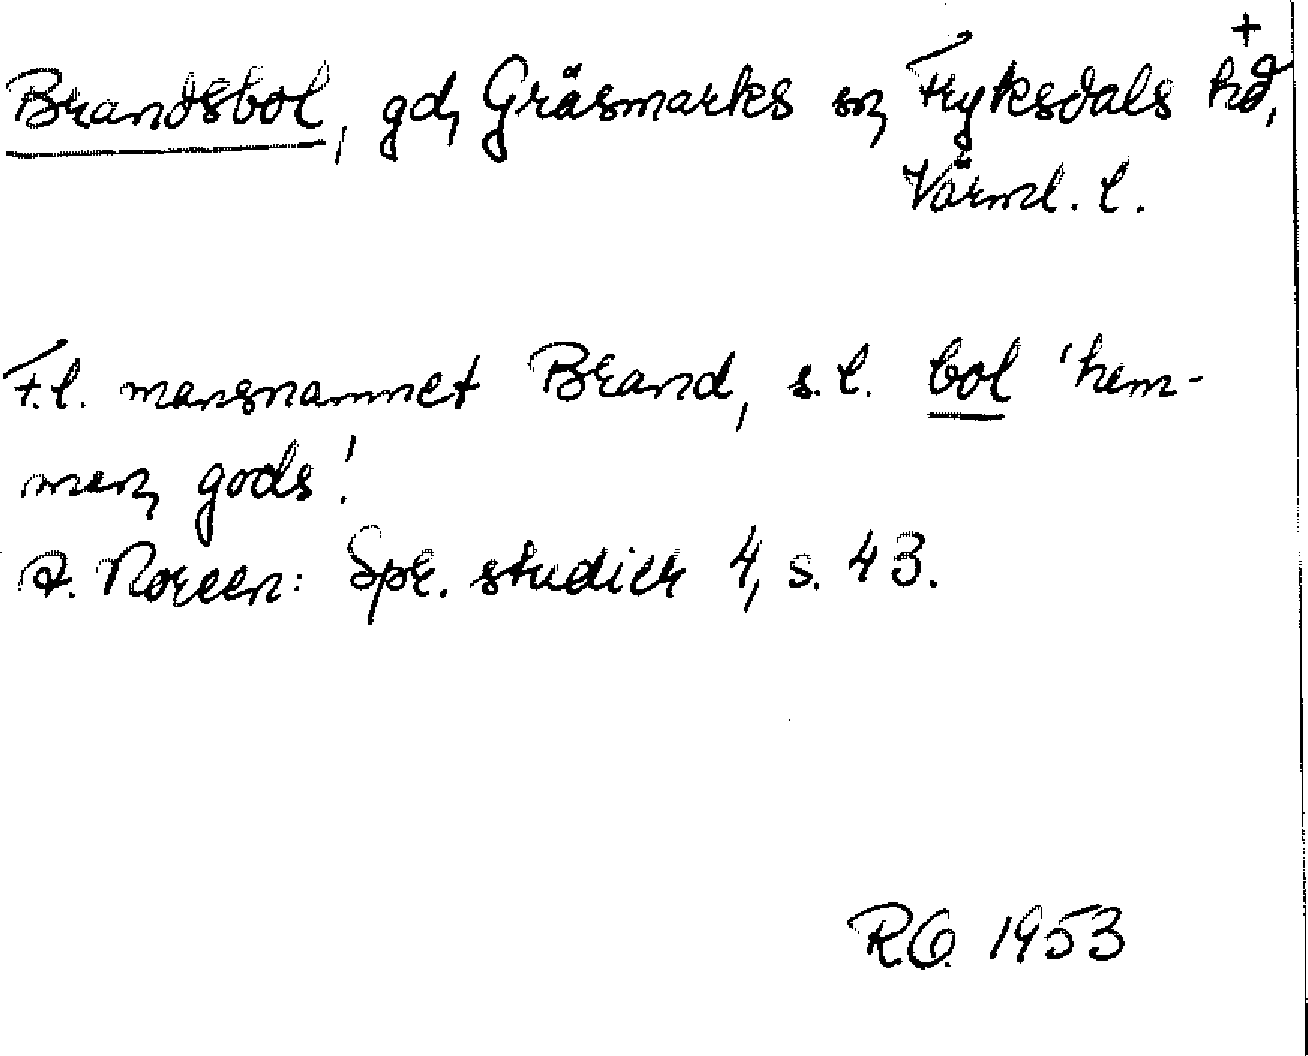 +
Brandsbol, gd, Gräsmarks sn, Fryksdals hd,
Värml. l.
F.l. mansnamnet Brand, s.l. bol 'hem-
man, gods'.
A. Noreen: Spr. studier 4, s. 43.
RO. 1953